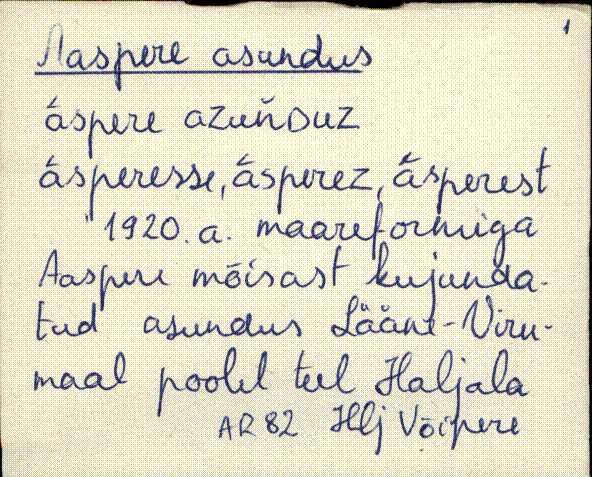 1
Aaspere asundus
áspere azuńDUZ
ásperesse, ásperez, ásperest
" 1920. a. maareformiga
Aaspere mõisast kujunda-
tud asundus Lääne-Viru-
maal poolel teel Haljala
AR 82 Hlj Võipere